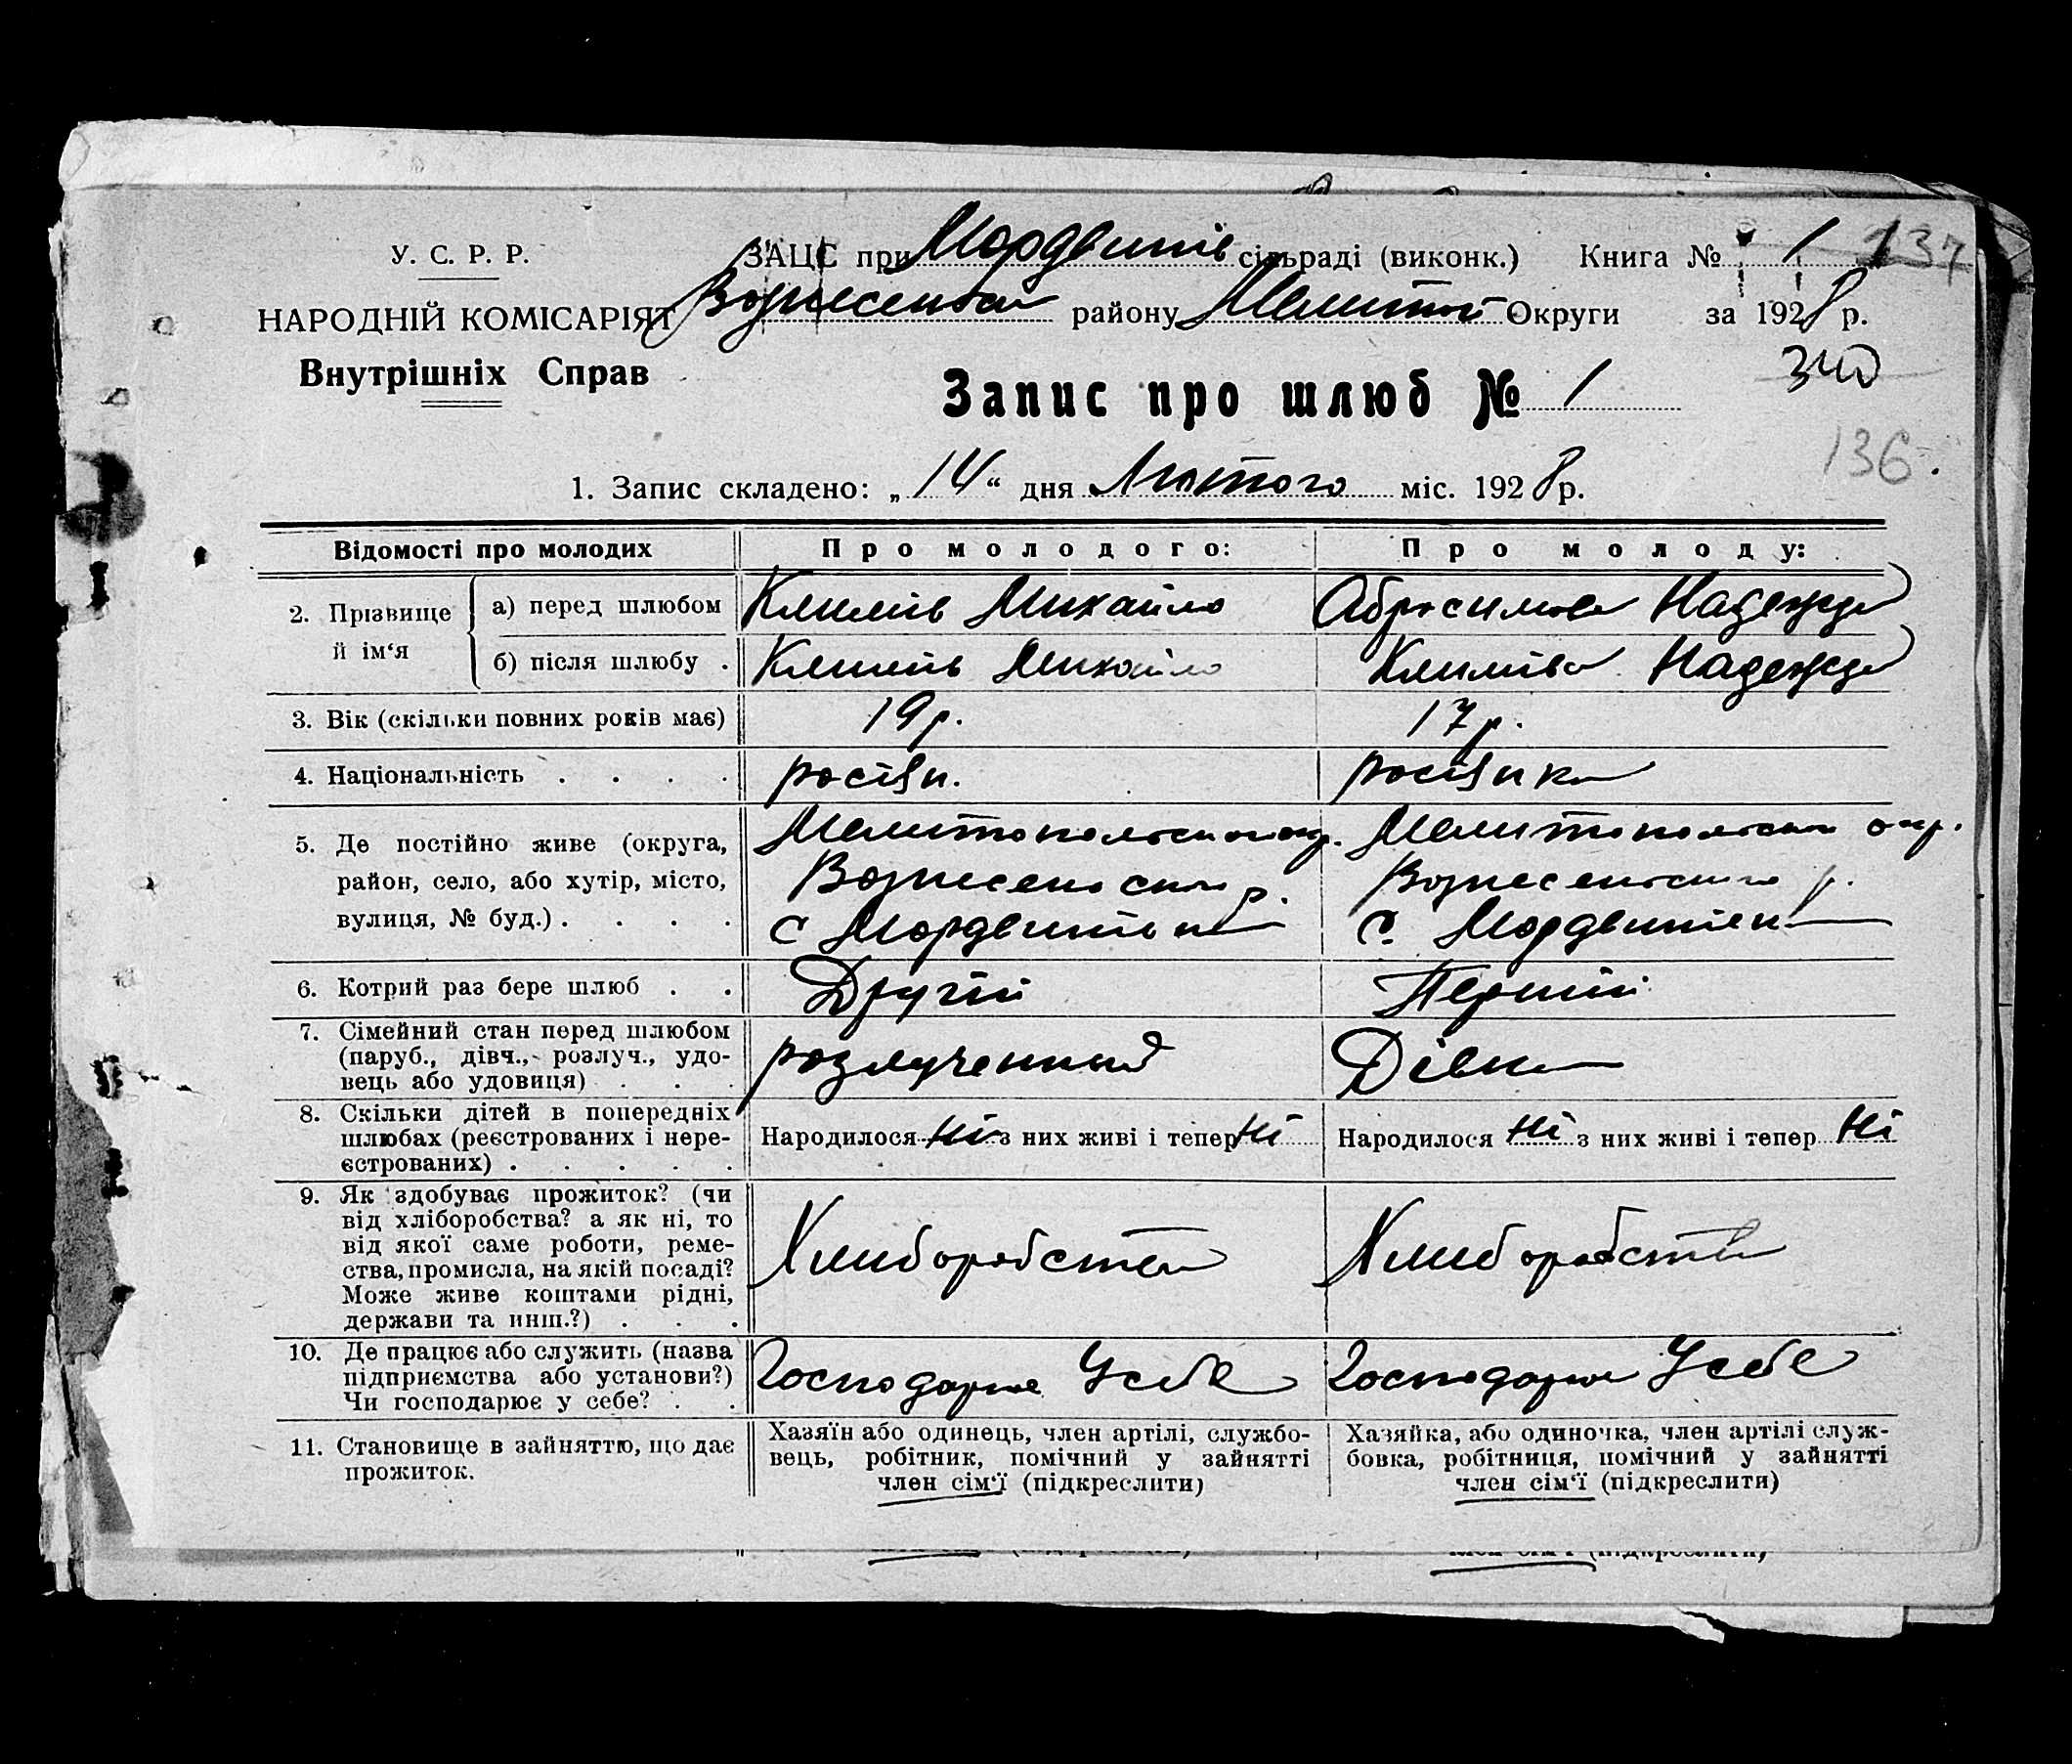 У. С. Р. Р.
НАРОДНІЙ КОМІСАРІЯТ
Внутрішніх Справ
ЗАЦС при Мордвинів сільраді (виконк.) Книга № 1 137
району Мелитоп Округи за 1928 р.
340
Запис про шлюб № 1
136
1. Запис складено: „14“ дня Лютого міс. 1928 р.
Відомості про молодих Про молодого: Про молоду:
2. Прізвище й ім‘я
а) перед шлюбом Климів Михайло Абросимова Надежда
б) після шлюбу . Климів Михайло Климіва Надежда
3. Вік (скільки повних років має) 19 р. 17 р.
4. Національність . . . . росіян. росіянка
5. Де постійно живе (округа,
район, село, або хутір, місто,
вулиця, № буд.) . . . .
Мелитопольского окр.
Вознесенского р.
с Мордвинівка
Мелитопольского окр.
Вознесенського р.
с. Мордвинівка
6. Котрий раз бере шлюб . . Другій Перший
7. Сімейний стан перед шлюбом
(паруб., дівч., розлуч., удо-
вець або удовиця) . . .
розлученный Дівка
8. Скільки дітей в попередніх
шлюбах (реєстрованих і нере-
єстрованих) . . . . .
Народилося Ні з них живі і тепер Ні
Народилося Ні з них живі і тепер Ні
9. Як здобуває прожиток? (чи
від хліборобства? а як ні, то
від якої саме роботи, реме-
ства, промисла, на якій посаді?
Може живе коштами рідні,
держави та инш.?) . . .
Хлиборобства Хлиборобства
10. Де працює або служить (назва
підприємства або установи?)
Чи господарює у себе? . .
Господарює У себе Господарює У себе
11. Становище в зайняттю, що дає
прожиток.
Хазяїн або одинець, член артілі, службо-
вець, робітник, помічний у зайнятті
член сім‘ї (підкреслити)
Хазяйка, або одиночка, член артілі служ-
бовка, робітниця, помічний у зайнятті
член сім‘ї (підкреслити)
член сім‘ї (підкреслити)